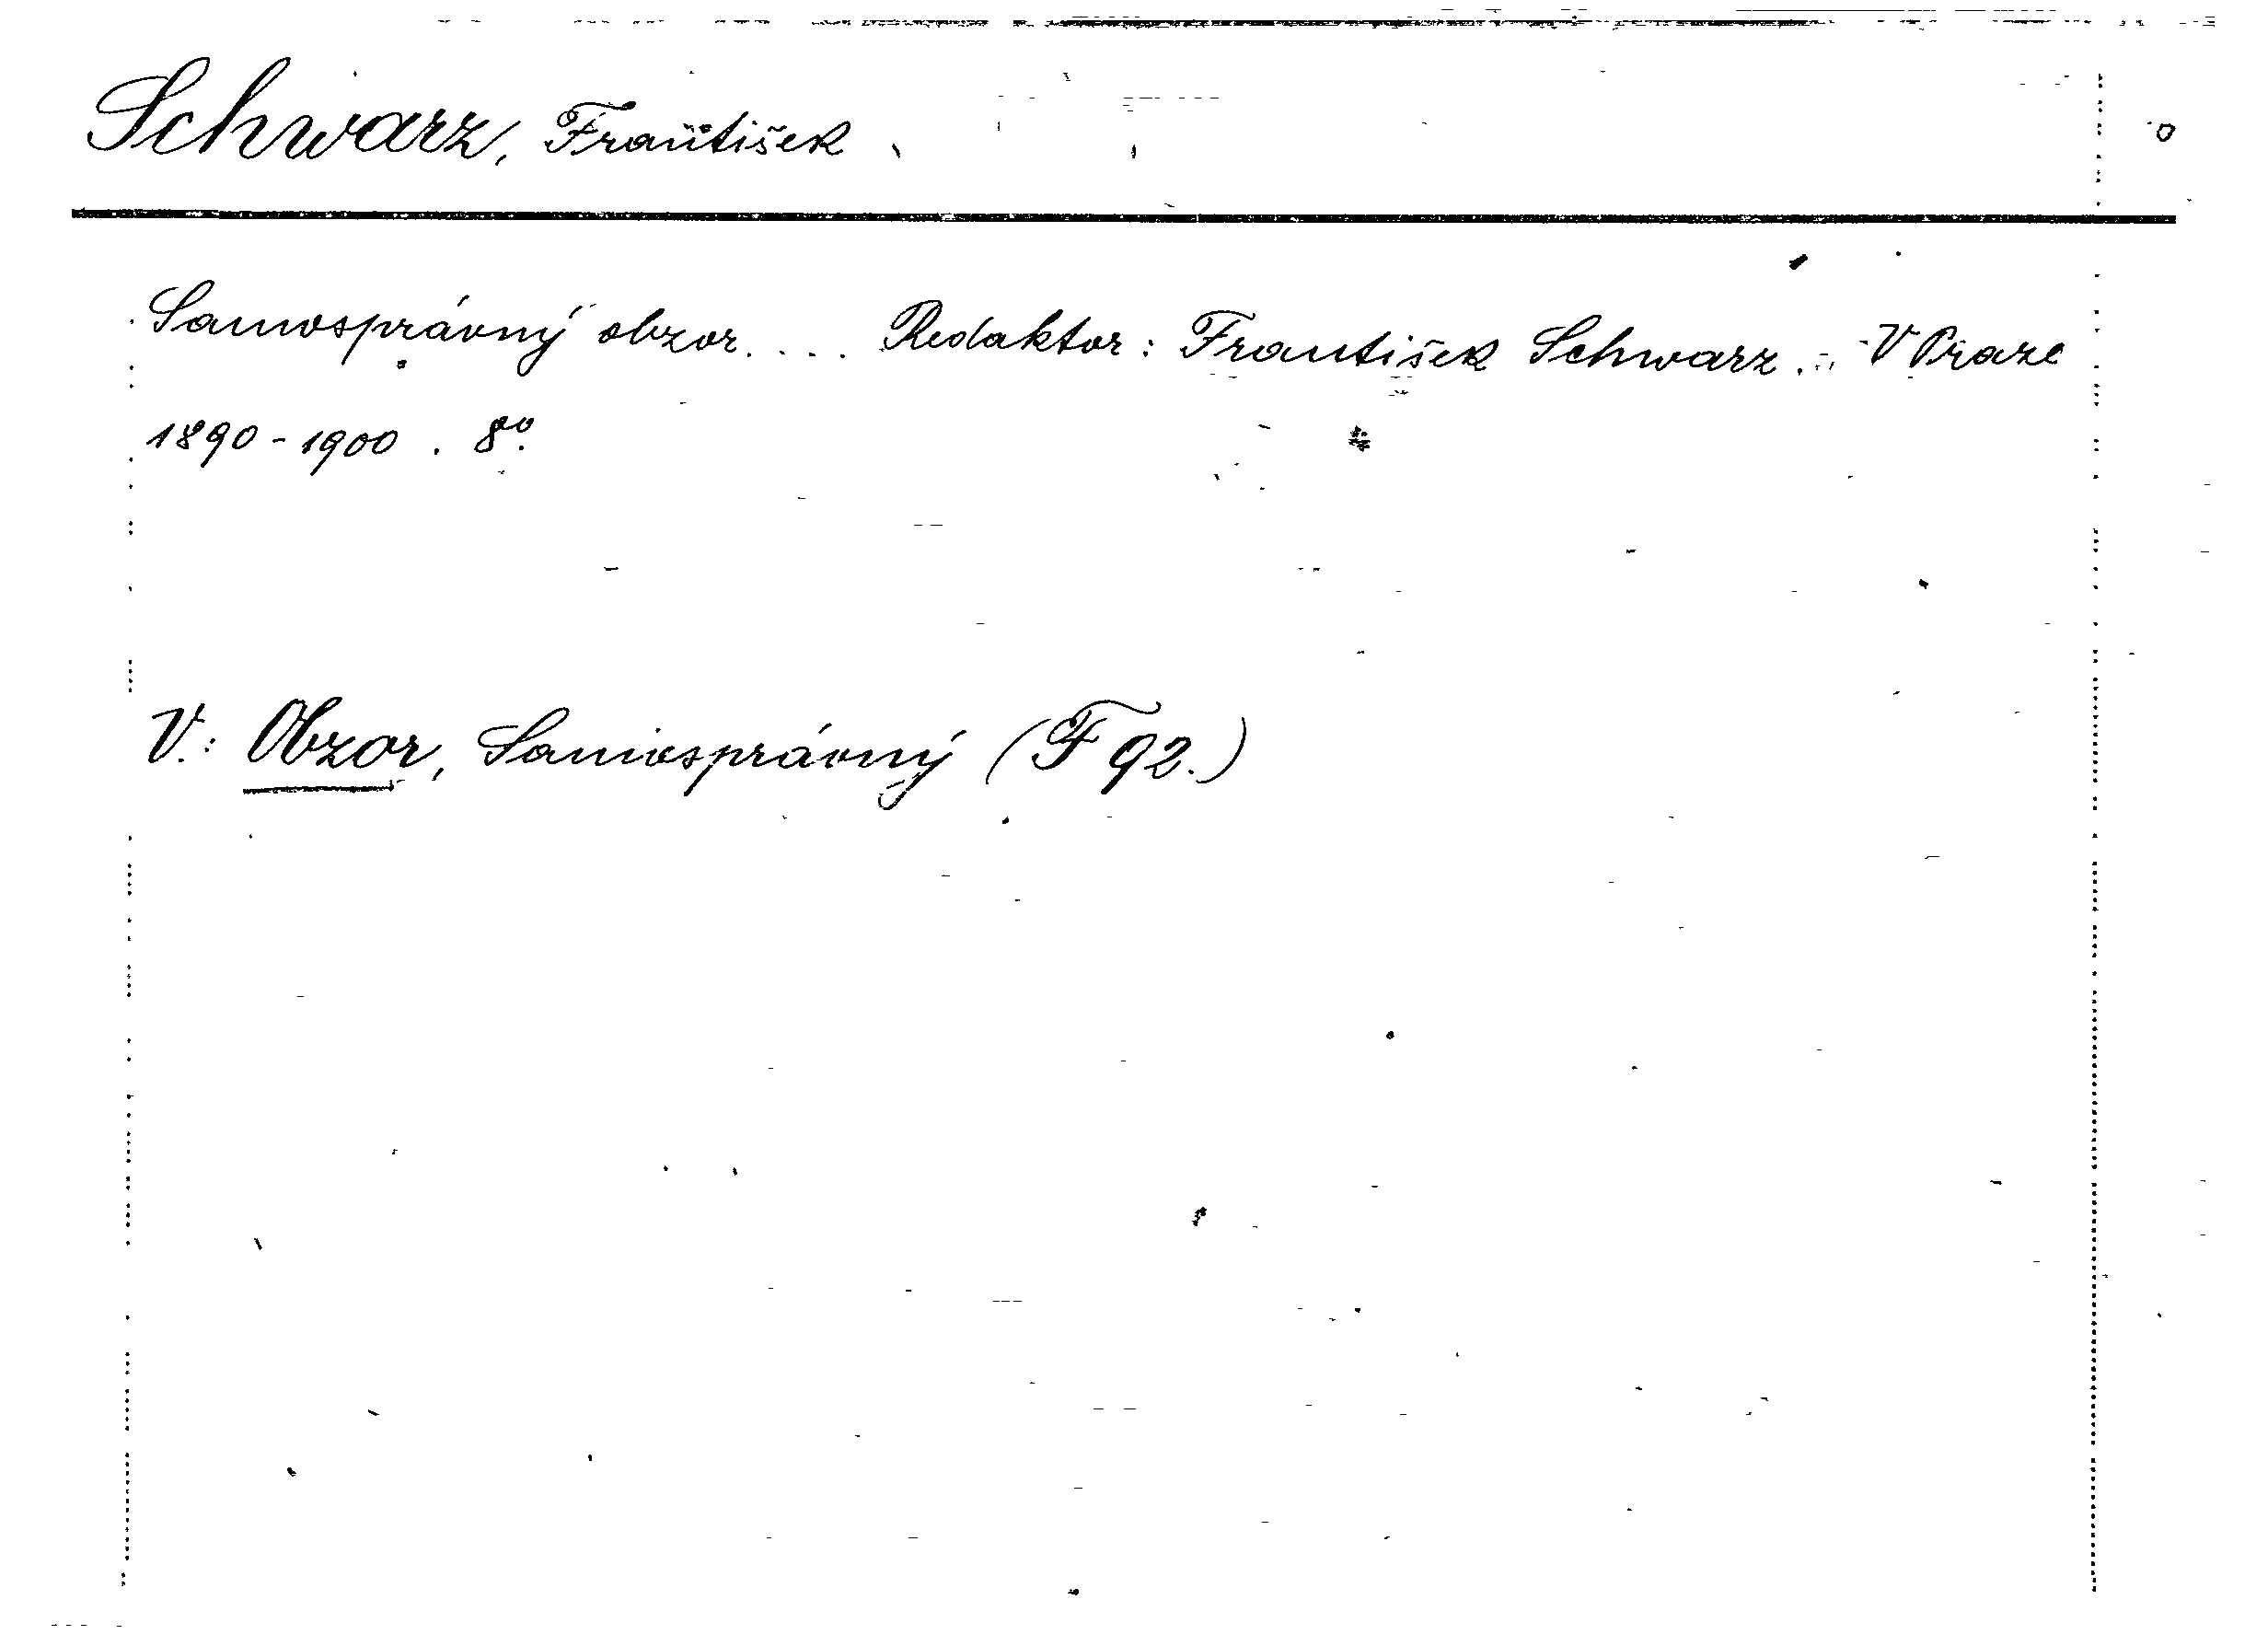 Schwarz, František
Samosprávný obzor.... Redaktor: František Schwarz. - V Praze
1890-1900. 8º.
V.: Obzor, Samosprávný (F 92.)